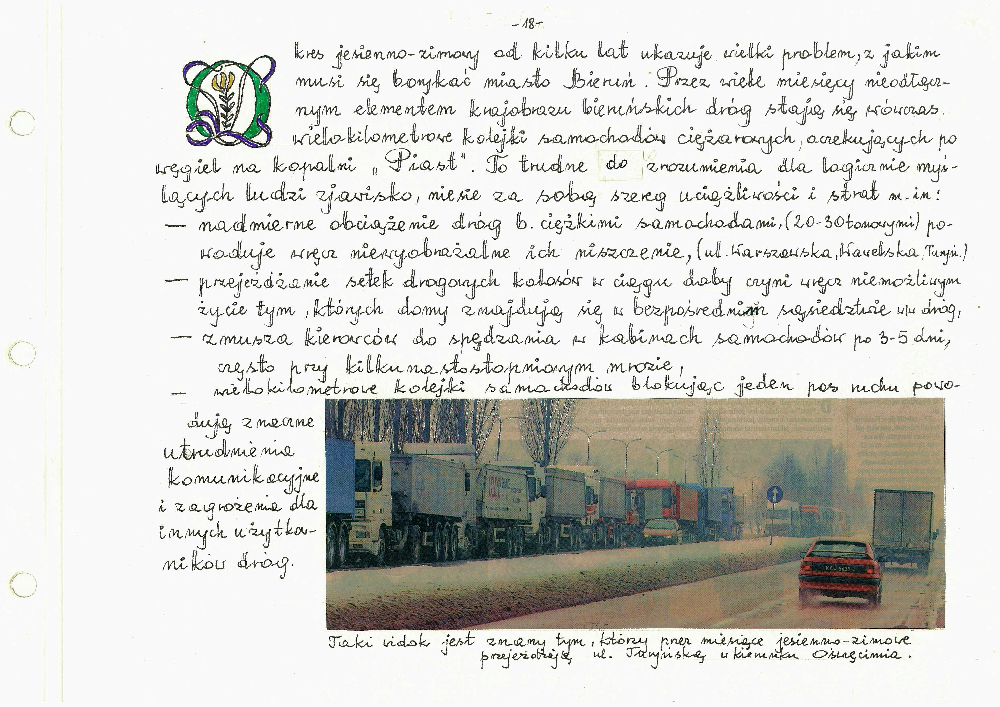 -18-
Okres jesienno-zimowy od kilku lat ukazuje wielki problem, z jakim
musi się borykać miasto Bieruń. Przez wiele miesięcy nieodłącz-
nym elementem krajobrazu bieruńskich dróg stają się wówczas
wielokilometrowe kolejki samochodów ciężarowych, oczekujących po
węgiel na kopalni „Piast". To trudne do zrozumienia dla logicznie myś-
lących ludzi zjawisko, niesie za sobą szereg uciążliwości i strat m.in:
— nadmierne obciążenie dróg b. ciężkimi samochodami, (20-30tonowymi) po-
woduje wręcz niewyobrażalne ich niszczenie, (ul. Warszawska, Wawelska, Turyń.)
— przejeżdżanie setek drogowych kolosów w ciągu doby czyni wręcz niemożliwym
życie tym, których domy znajdują się w bezpośrednim sąsiedztwie w/w dróg,
— zmusza kierowców do spędzania w kabinach samochodów po 3-5 dni,
często przy kilkunastostopniowym mrozie,
— wielokilometrowe kolejki samochodów blokując jeden pas ruchu powo-
dują znaczne
utrudnienia
komunikacyjne
i zagrożenia dla
innych użytko-
wników dróg.
Taki widok jest znany tym, którzy przez miesiące jesienno-zimowe
przejeżdżają ul. Turyńską w kierunku Oświęcimia.